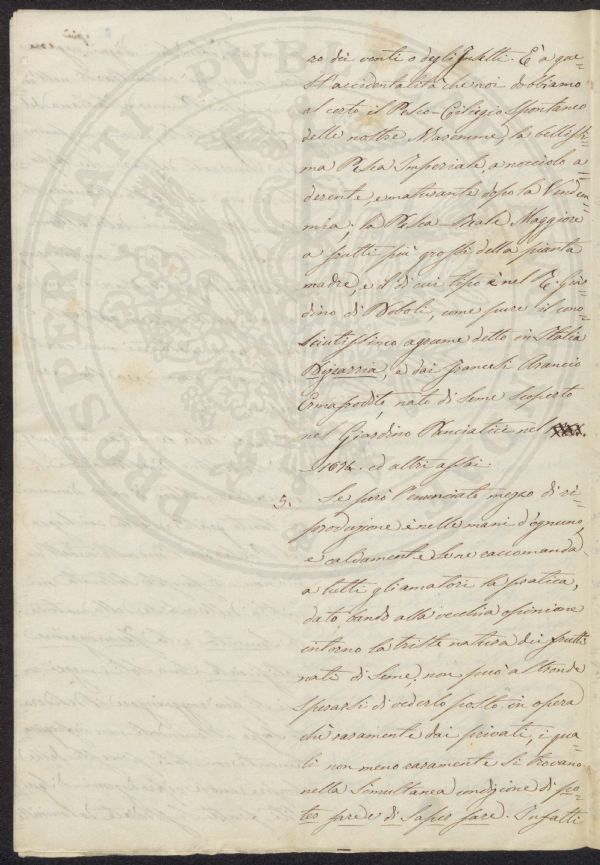 ro dei venti o degli Insetti. È a que=
st'accidentalità che noi dobbiamo
al certo il Pesco-Ciliegio spontaneo
delle nostre Maremme, la bellissi=
ma Pesca Imperiale, a nocciolo a=
derente, e maturante dopo la Vendem=
mia; la Pesca-Reale Maggiore
a frutti più grossi della pianta
madre, e il di cui tipo è nel R. Giar=
dino di Boboli, come pure il cono=
sciutissimo agrume detto in Italia
Bizzarria, e dai francesi Arancio
Ermafrodito, nato di seme scoperto
nel Giardino Panciatici nel
1674. ed altri assai.
5. Se però l'enunciato mezzo di ri=
produzione è nelle mani d'ognuno,
e caldamente se ne raccomanda
a tutti gli amatori la pratica,
dato bando alla vecchia opinione
intorno la triste natura dei frutti
nati di seme, non può altronde
sperarsi di vederlo posto in opera
chè raramente dai privati, i qua=
li non meno raramente si trovano
nella simultanea condizione di po=
ter fare e di saper fare. Infatti
PROSPERITATI PVBL